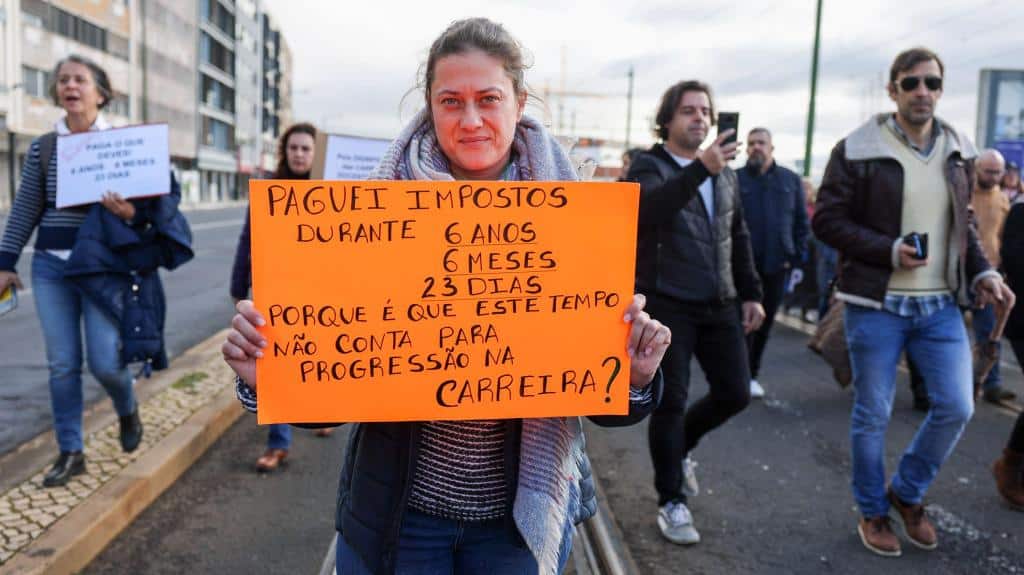 PAGUEI IMPOSTOS
DURANTE 6 ANOS
6 MESES
23 DIAS
PORQUE É QUE ESTE TEMPO
NÃO CONTA PARA
PROGRESSÃO NA
CARREIRA?
PAGA O QUE
DEVES!
6 MESES
23 DIAS